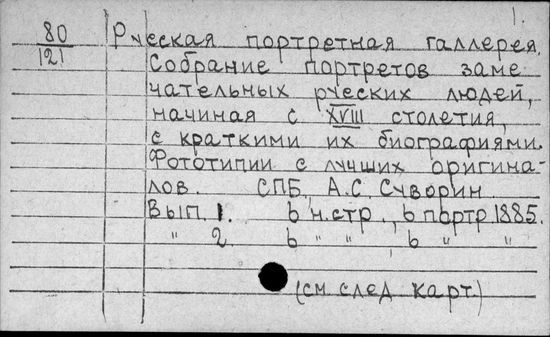 1.
80
121
Русская портретная галлерея.
Собрание портретов заме
чательных русских людей,
начиная с XVIII столетия,
с краткими их биографиями.
Фототипии с лучших оригина-
лов. СПБ, А.С. Суворин
Вып. 1. 6 н.стр., 6 портр 1885.
" 2. 6 " " , 6 " "
(см след карт.)